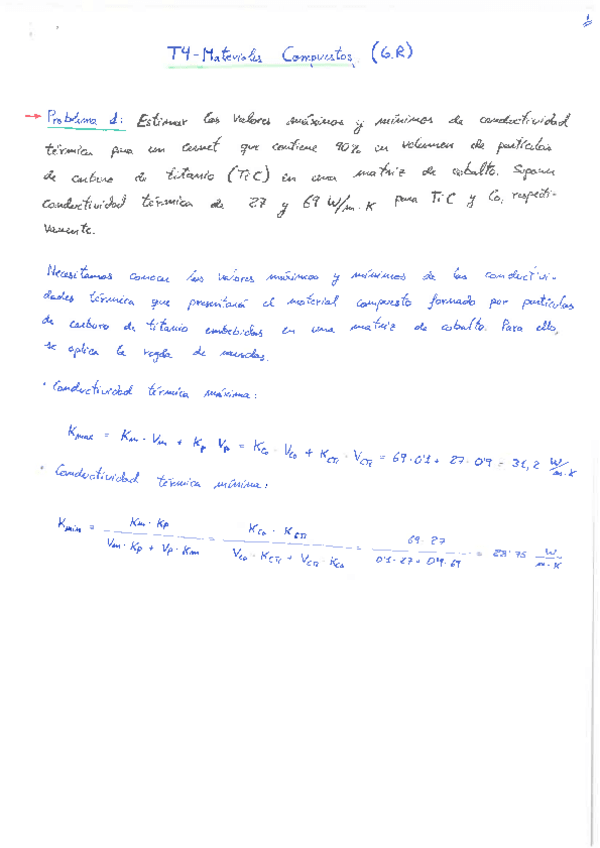 T4-Materiales Compuestos (G.R)
→ Problema 1: Estimar los valores máximos y mínimos de conductividad
térmica para un cermet que contiene 90% en volumen de partículas
de carburo de titanio (TiC) en una matriz de cobalto. Suponer
conductividad térmica de 27 y 69 W/m·K para TiC y Co, respecti-
vamente.
Necesitamos conocer los valores máximos y mínimos de las conductivi-
dades térmica que presentará el material compuesto formado por partículas
de carburo de titanio embebidas en una matriz de cobalto. Para ello,
se aplica la regla de mezclas.
· Conductividad térmica máxima:
Kmax = Km · Vm + Kp Vp = KCo · VCo + KCTi · VCTi = 69·0'1 + 27·0'9 = 31,2 W/m·K
· Conductividad térmica mínima:
Kmin = Km · Kp / Vm · Kp + Vp · Km = KCo · KCTi / VCo · KCTi + VCTi · KCo = 69·27 / 0'1·27 + 0'9·69 = 28'75 W/m·K